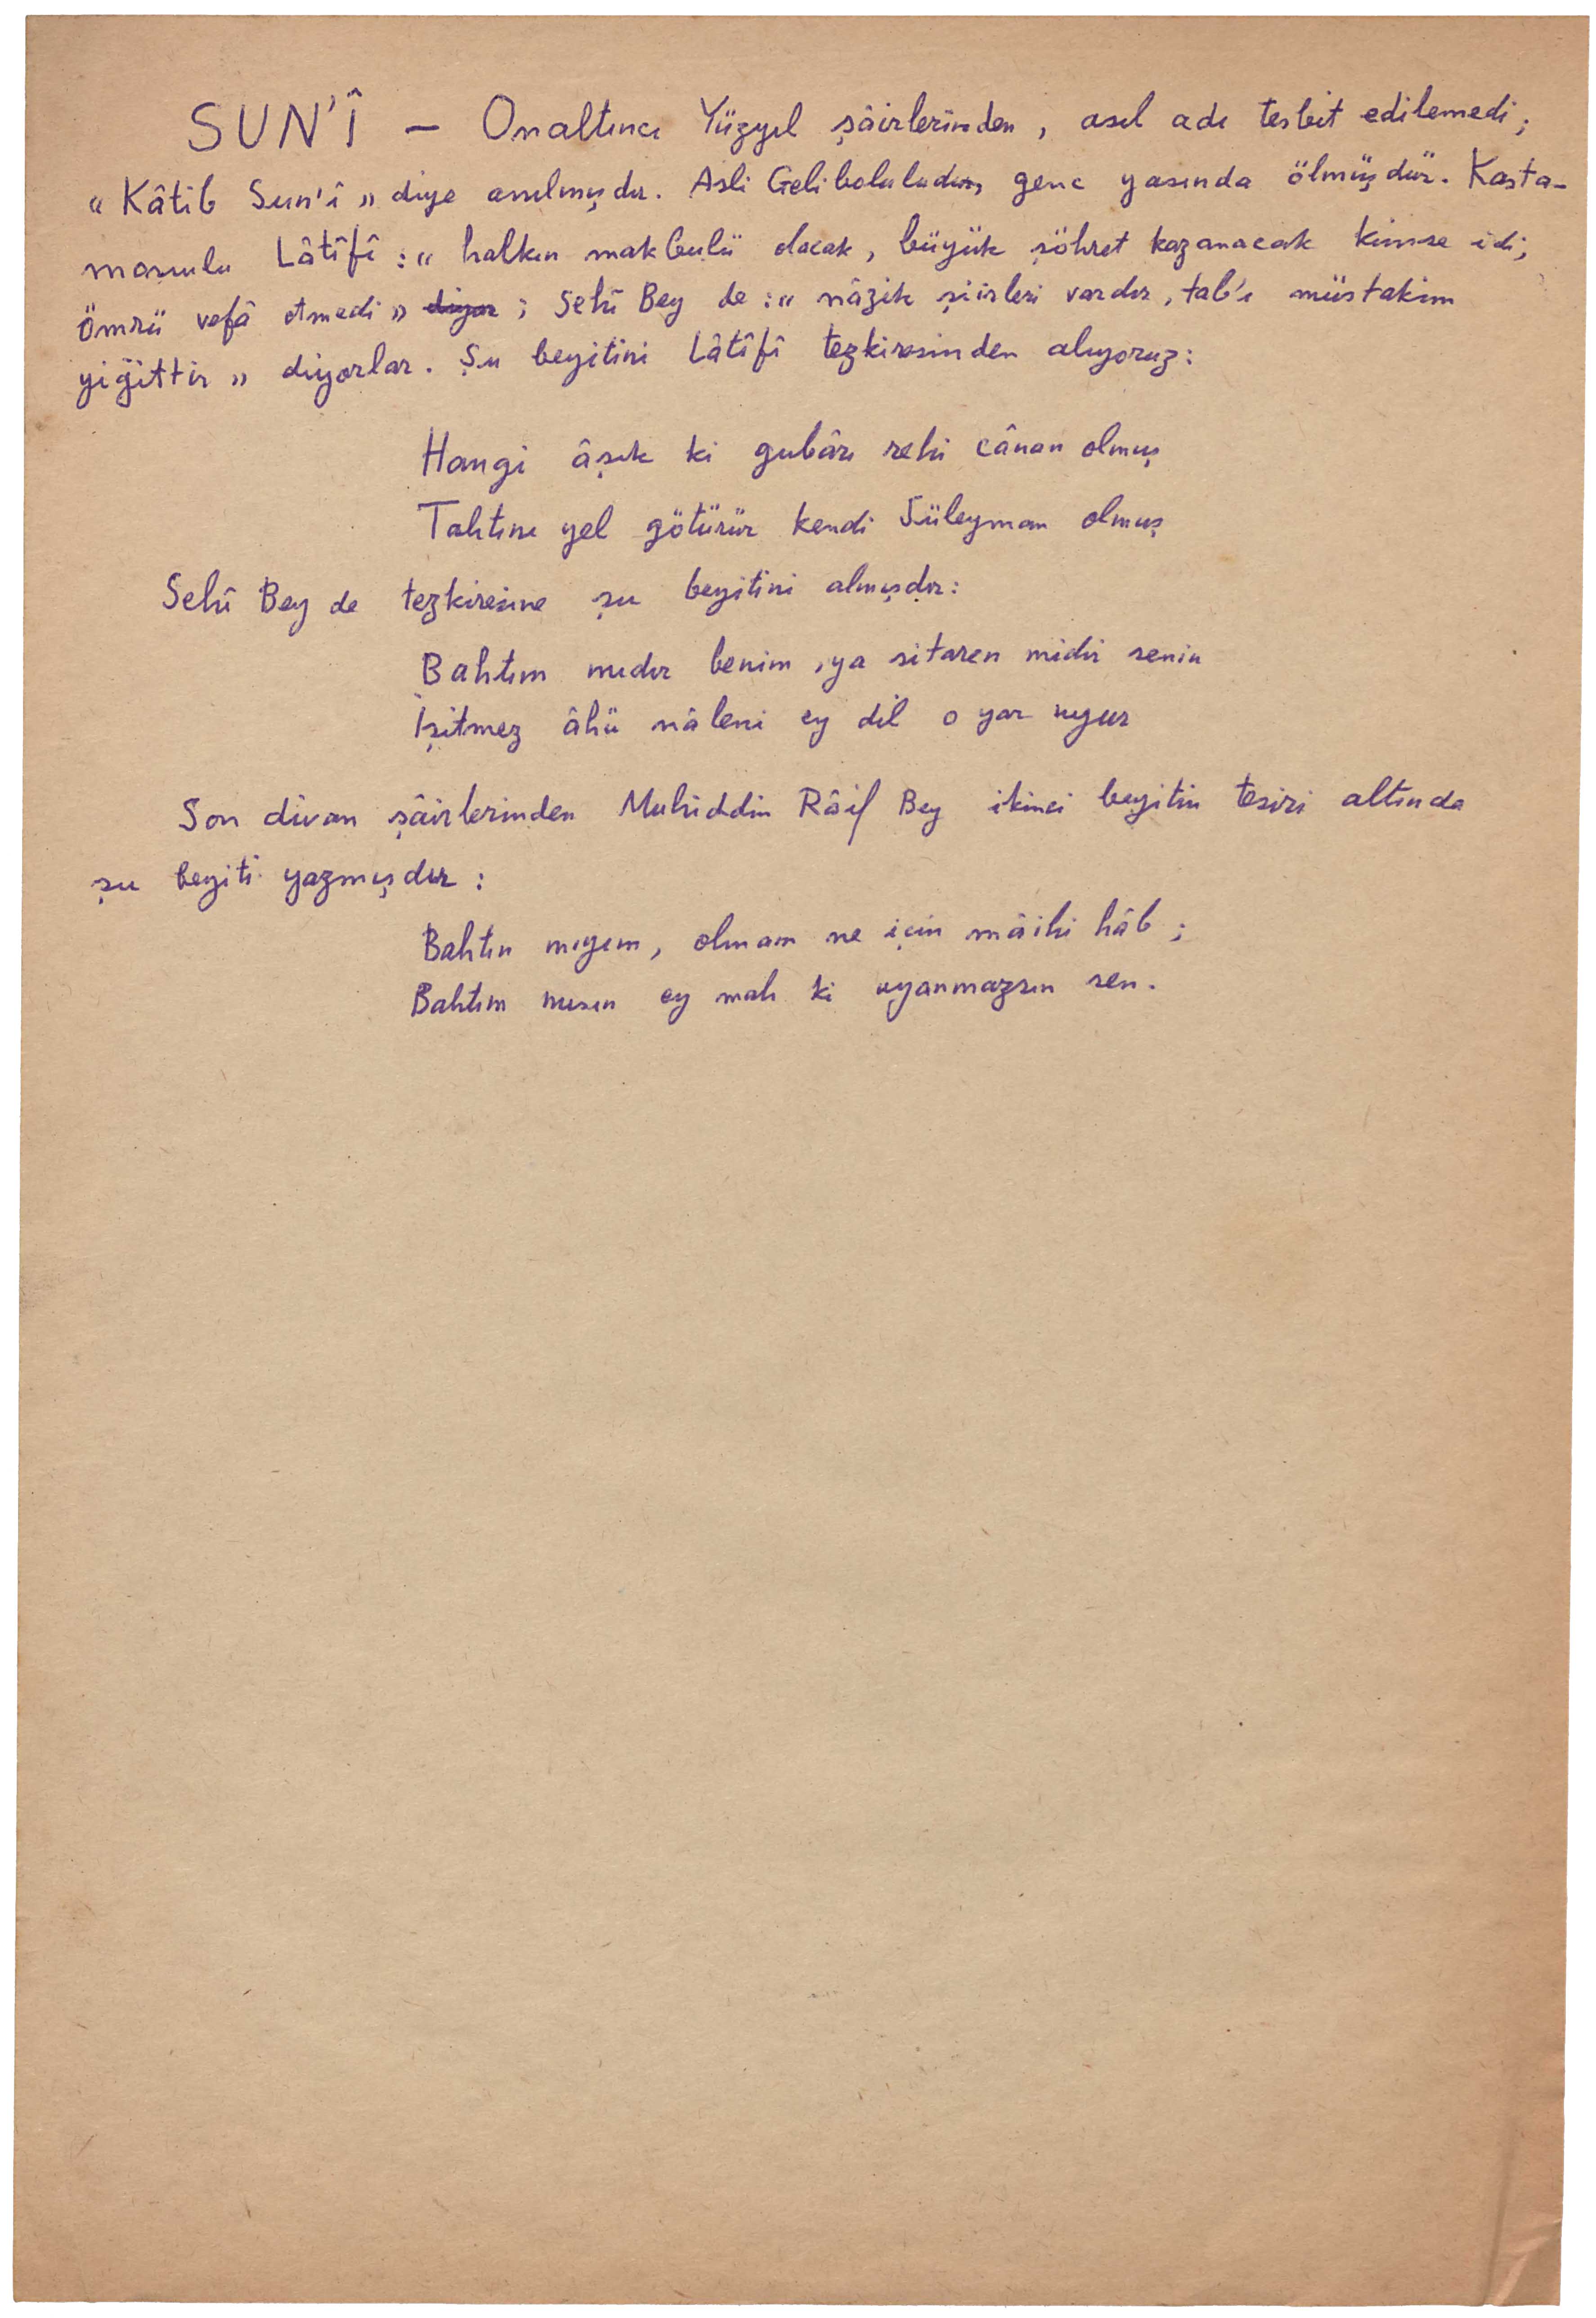 SUN'Î — Onaltıncı Yüzyıl şâirlerinden, asıl adı tesbit edilemedi;
"Kâtib Sun'î" diye anılmışdır. Asli Geliboluludur, genc yasında ölmüşdür. Kasta-
monulu Lâtîfî : "halkın makbulü olacak, büyük şöhret kazanacak kimse idi;
ömrü vefâ etmedi" diyor ; Sehî Bey de : "nâzik şiirleri vardır, tab'ı müstakim
yiğittir" diyorlar. Şu beyitini Lâtîfî tezkiresinden alıyoruz:
Hangi âşık ki gubârı rehi cânan olmuş
Tahtını yel götürür kendi Süleyman olmuş
Sehî Bey de tezkiresine şu beyitini almışdır:
Bahtım mıdır benim, ya sitaren midir senin
İşitmez âhü nâleni ey dil o yar uyur
Son divan şâirlerinden Muhiddin Râif Bey ikinci beyitin tesiri altında
şu beyiti yazmışdır :
Bahtın mıyım, olmam ne için mâili hâb ;
Bahtım mısın ey mah ki uyanmazsın sen.